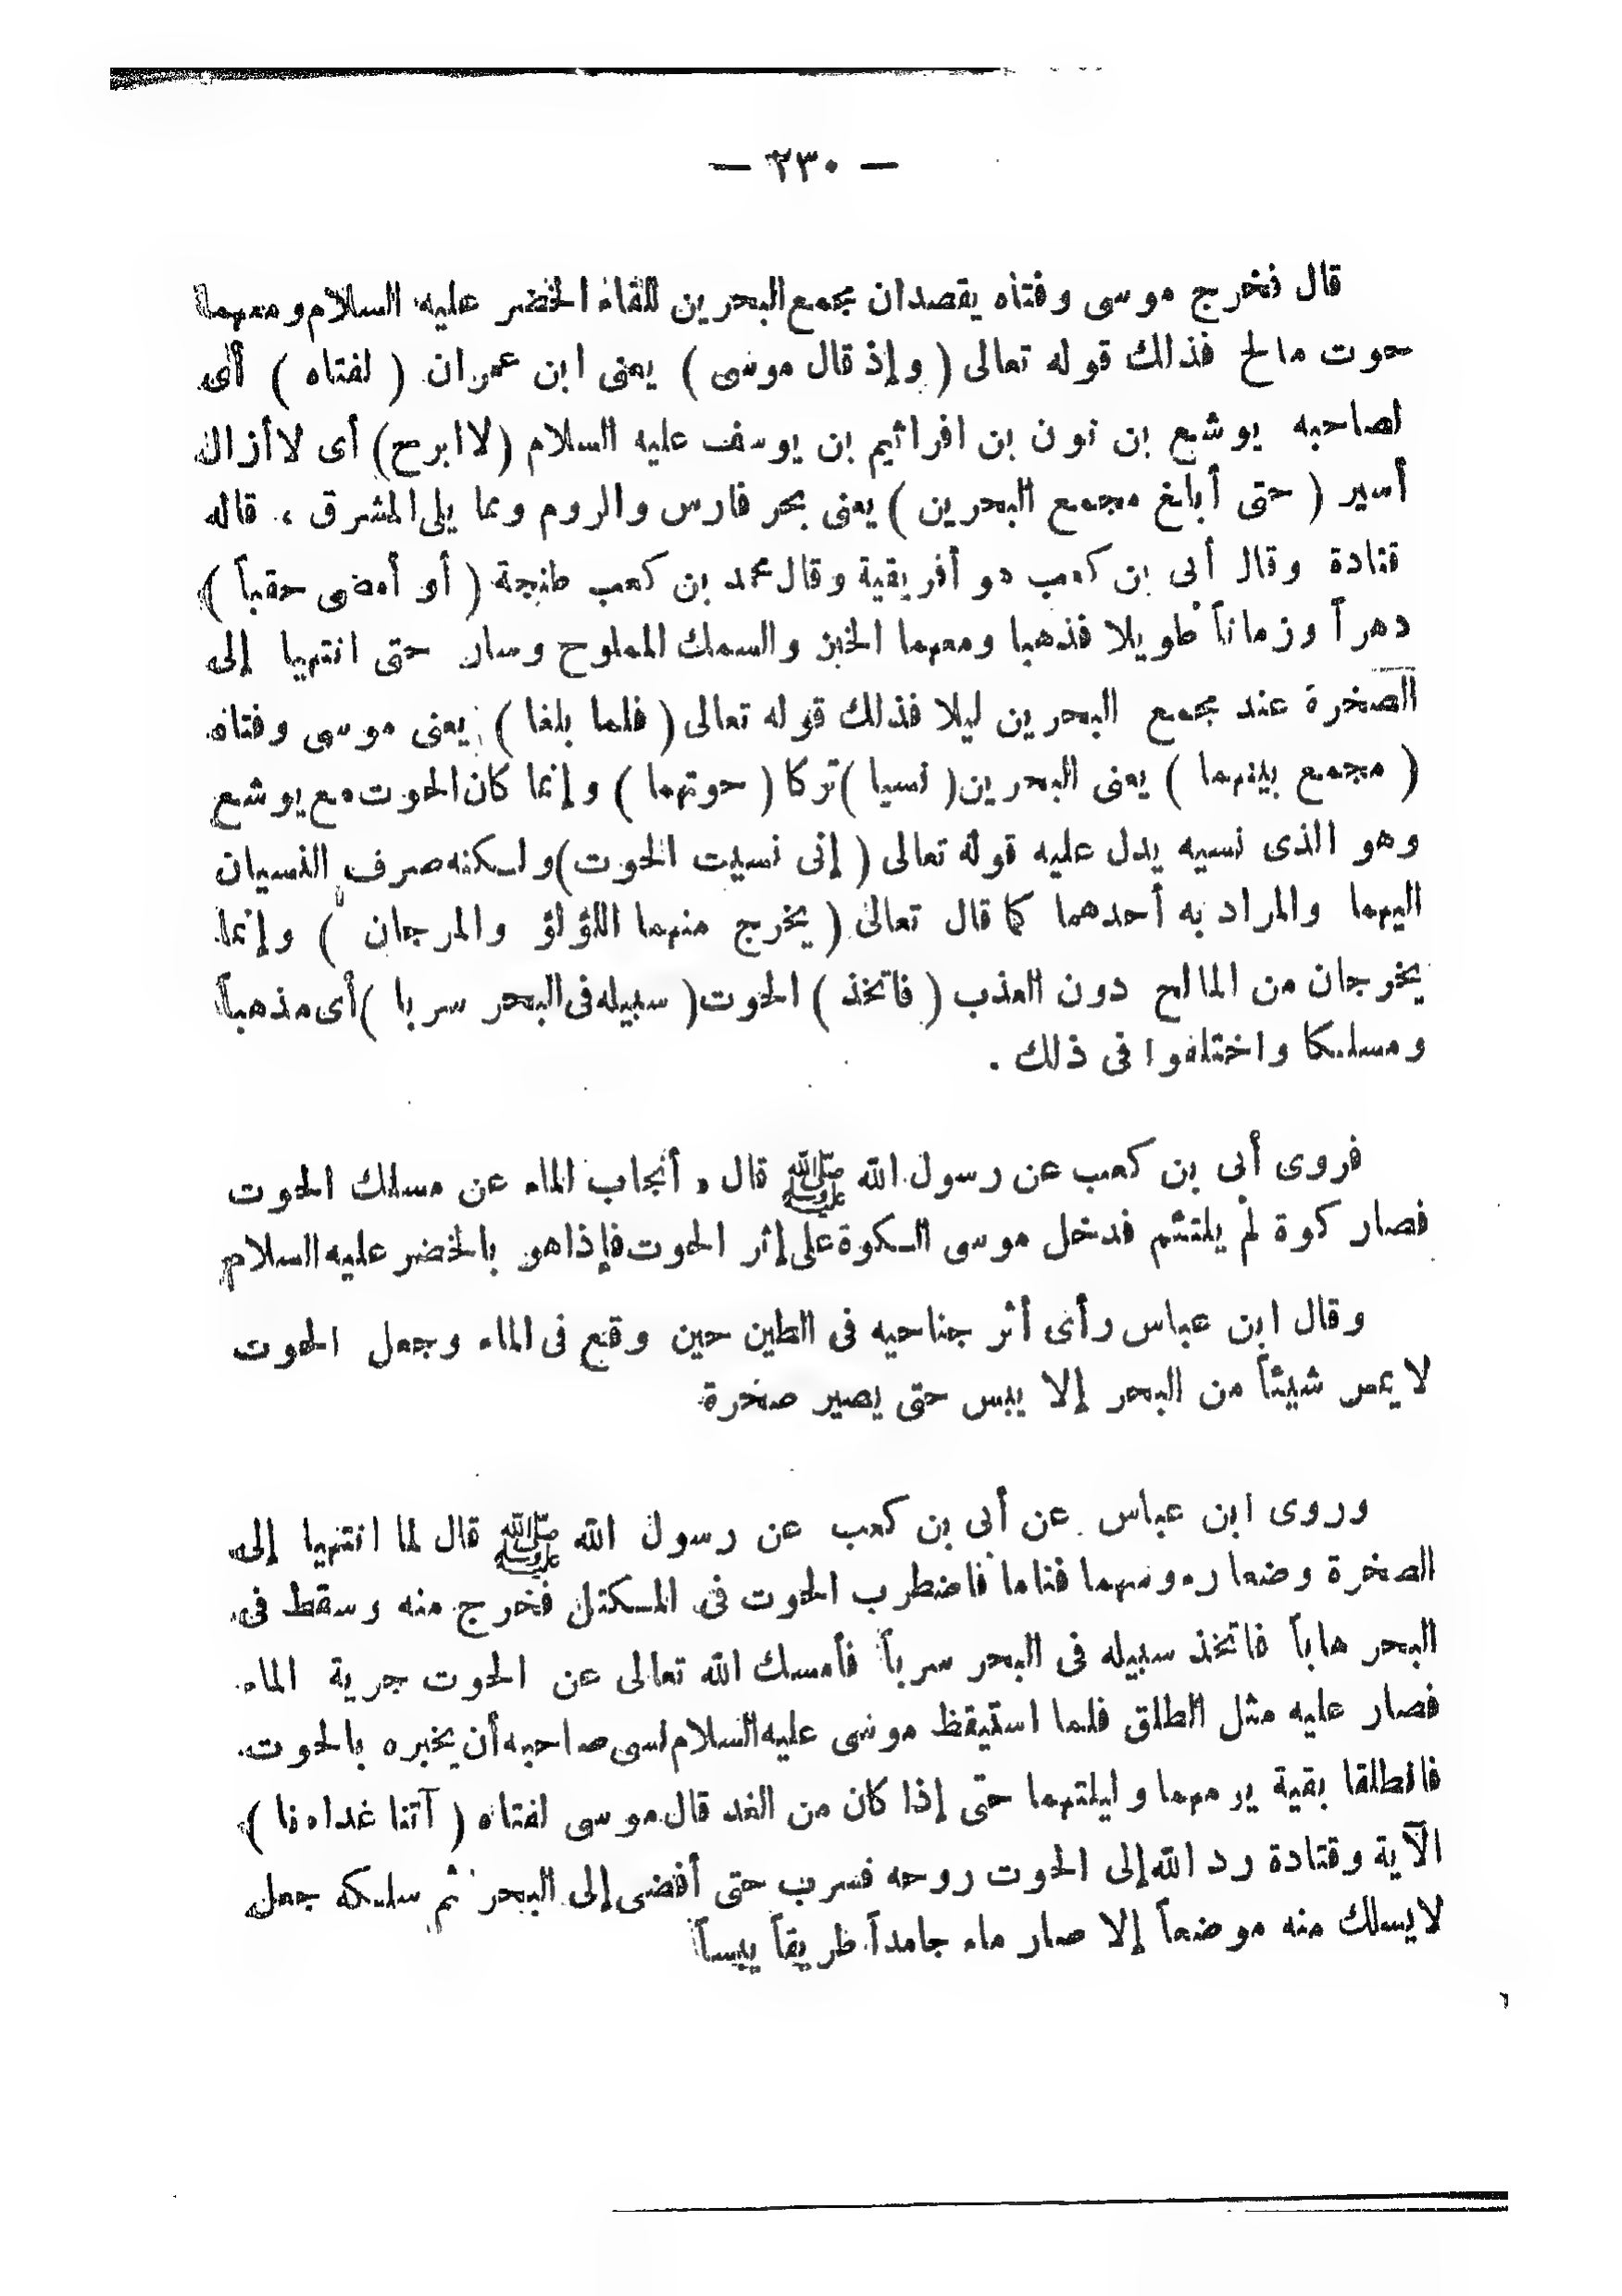 — ٢٣٠ —
قال فخرج موسى وفتاه يقصدان مجمع البحرين للقاء الخضر عليه السلام ومعهما
حوت مالح فذلك قوله تعالى ( وإذ قال موسى ) يعنى ابن عمران ( لفتاه ) أى
لصاحبه يوشع بن نون بن افرائيم بن يوسف عليه السلام (لاابرح) أى لاأزال
أسير ( حتى أبلغ مجمع البحرين ) يعنى بحر فارس والروم ومما يلى المشرق ، قاله
قتادة وقال أبى بن كعب هو أفريقية وقال محمد بن كعب طنجة ( أو أمضى حقباً )
دهراً وزماناً طويلا فذهبا ومعهما الخبز والسمك المملوح وسار حتى انتهيا إلى
الصخرة عند مجمع البحرين ليلا فذلك قوله تعالى ( فلما بلغا ) يعنى موسى وفتاه
( مجمع بينهما ) يعنى البحرين ( نسيا ) تركا ( حوتهما ) وإنما كان الحوت مع يوشع
وهو الذى نسيه يدل عليه قوله تعالى ( إنى نسيت الحوت ) ولكنه صرف النسيان
اليهما والمراد به أحدهما كما قال تعالى ( يخرج منهما اللؤلؤ والمرجان ) وإنما
يخرجان من المالح دون العذب ( فاتخذ ) الحوت ( سبيله فى البحر سربا ) أى مذهباً
ومسلكا واختلفوا فى ذلك .
فروى أبى بن كعب عن رسول الله ﷺ قال ، أنجاب الماء عن مسلك الحوت
فصار كوة لم يلتئم فدخل موسى الكوة على إثر الحوت فإذا هو بالخضر عليه السلام
وقال ابن عباس رأى أثر جناحيه فى الطين حين وقع فى الماء وجعل الحوت
لا يمس شيئاً من البحر إلا يبس حتى يصير صخرة
وروى ابن عباس عن أبى بن كعب عن رسول الله ﷺ قال لما انتهيا إلى
الصخرة وضعا رءوسهما فناما فاضطرب الحوت فى المكتل فخرج منه وسقط فى
البحر هاباً فاتخذ سبيله فى البحر سرباً فأمسك الله تعالى عن الحوت جرية الماء
فصار عليه مثل الطلق فلما استيقظ موسى عليه السلام نسى صاحبه أن يخبره بالحوت
فانطلقا بقية يومهما وليلتهما حتى إذا كان من الغد قال موسى لفتاه ( آتنا غداءنا )
الآية وقتادة رد الله إلى الحوت روحه فسرب حتى أفضى إلى البحر ثم سلكه جعل
لايسلك منه موضعاً إلا صار ماء جامداً طريقاً يبساً